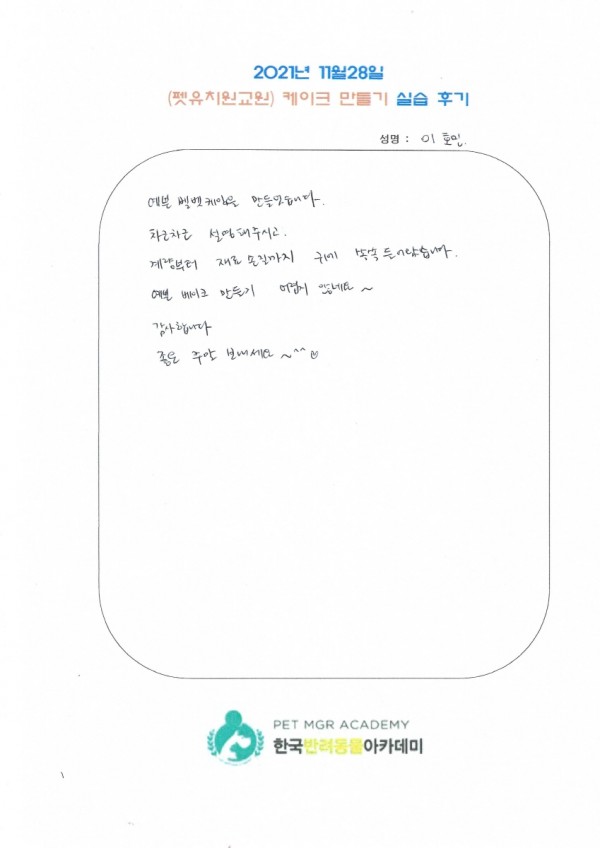 2021년 11월28일
(펫유치원교원) 케이크 만들기 실습 후기
성명 : 이호민.
예쁜 벨벳케잌을 만들었습니다.
차근차근 설명해주시고.
계량부터 재료손질까지 귀에 쏙쏙 들어왔습니다.
예쁜 케이크 만들기 어렵지 않네요~
감사합니다
좋은 주말 보내세요~^^♡
PET MGR ACADEMY
한국반려동물아카데미